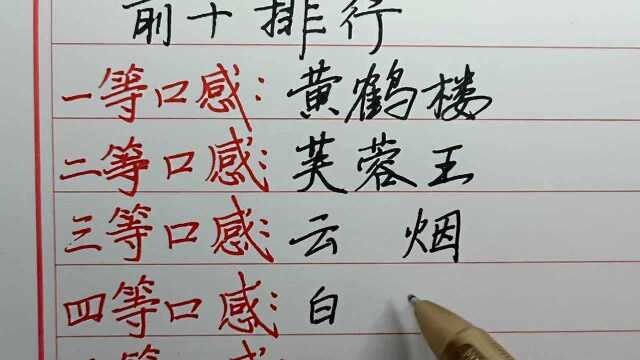 前十排行
一等口感：黄鹤楼
二等口感：芙蓉王
三等口感：云 烟
四等口感：白